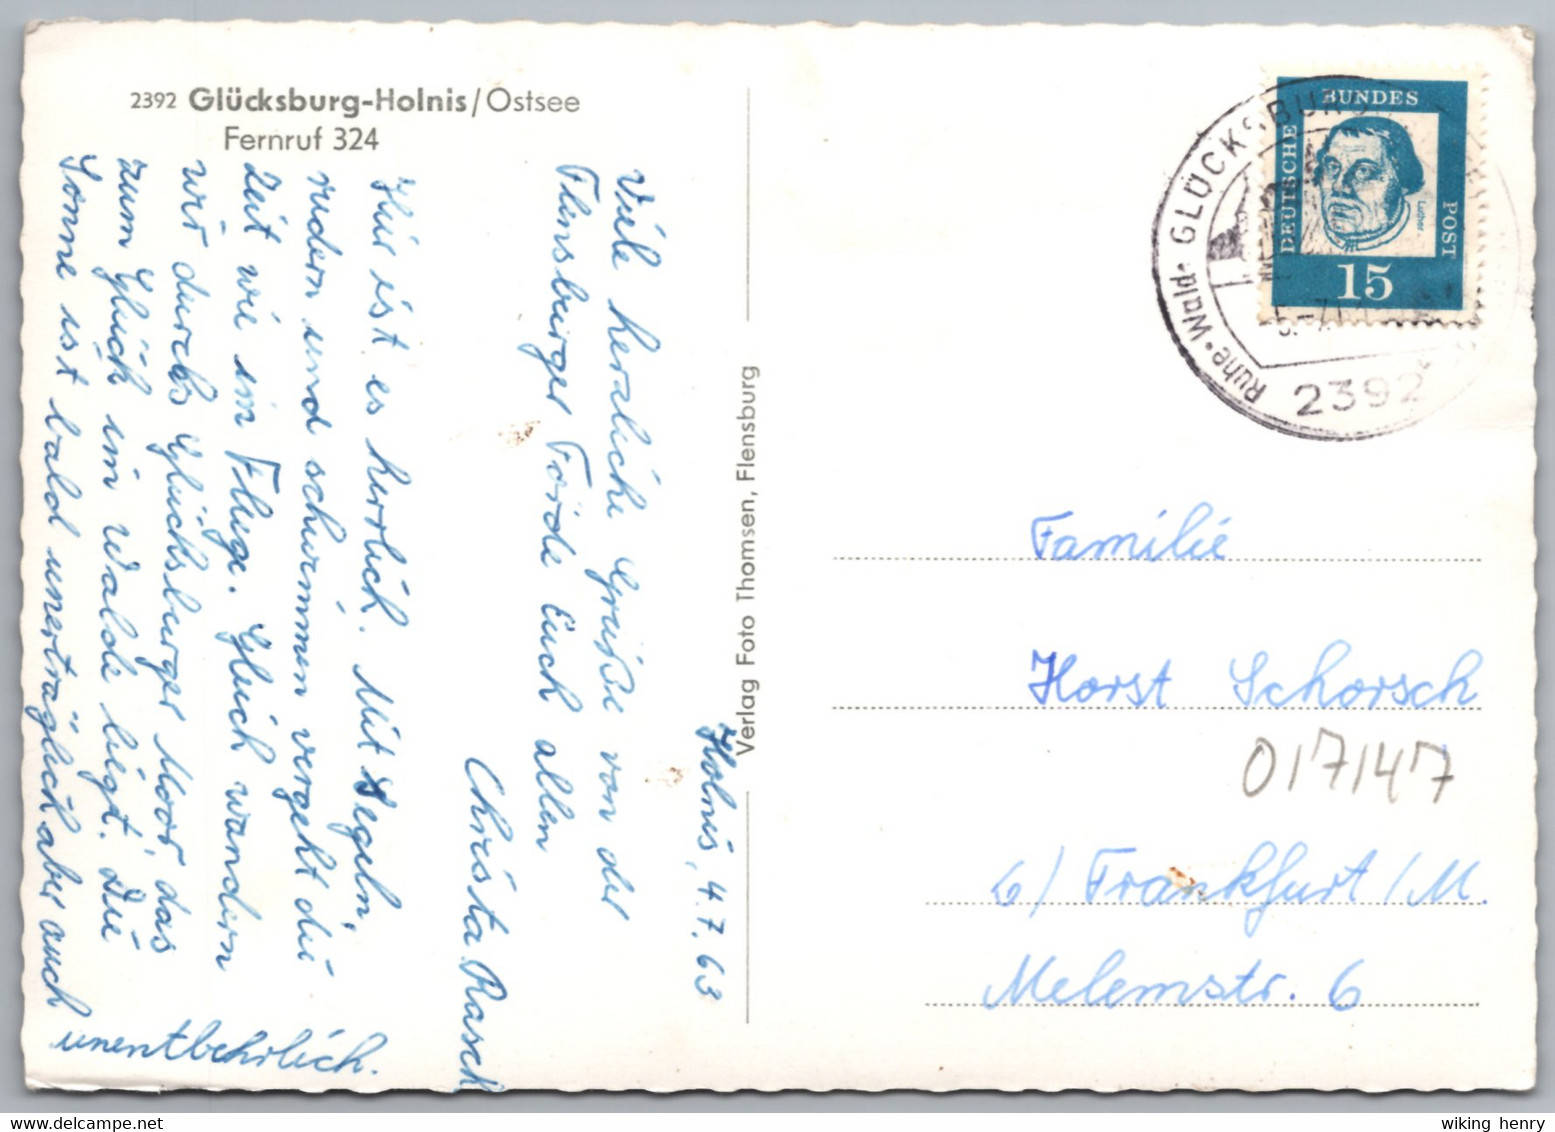 2392 Glücksburg-Holnis/Ostsee
Fernruf 324
Holnis, 4.7.63
Viele herzliche Grüße von der
Flensburger Förde Euch allen
Christa Rasch
Hier ist es herrlich. Mit Segeln,
rudern und schwimmen vergeht die
Zeit wie im Fluge. Gleich wandern
wir durchs Glücksburger Moor das
zum Glück im Walde liegt. Die
Sonne ist bald unerträglich aber auch
unentbehrlich.
Verlag Foto Thomsen, Flensburg
DEUTSCHE BUNDES POST
Luther
15
GLÜCKSBURG
Ruhe · Wald ·
2392
Familie
Horst Schorsch
017147
6) Frankfurt/M.
Melemstr. 6
wiking henry